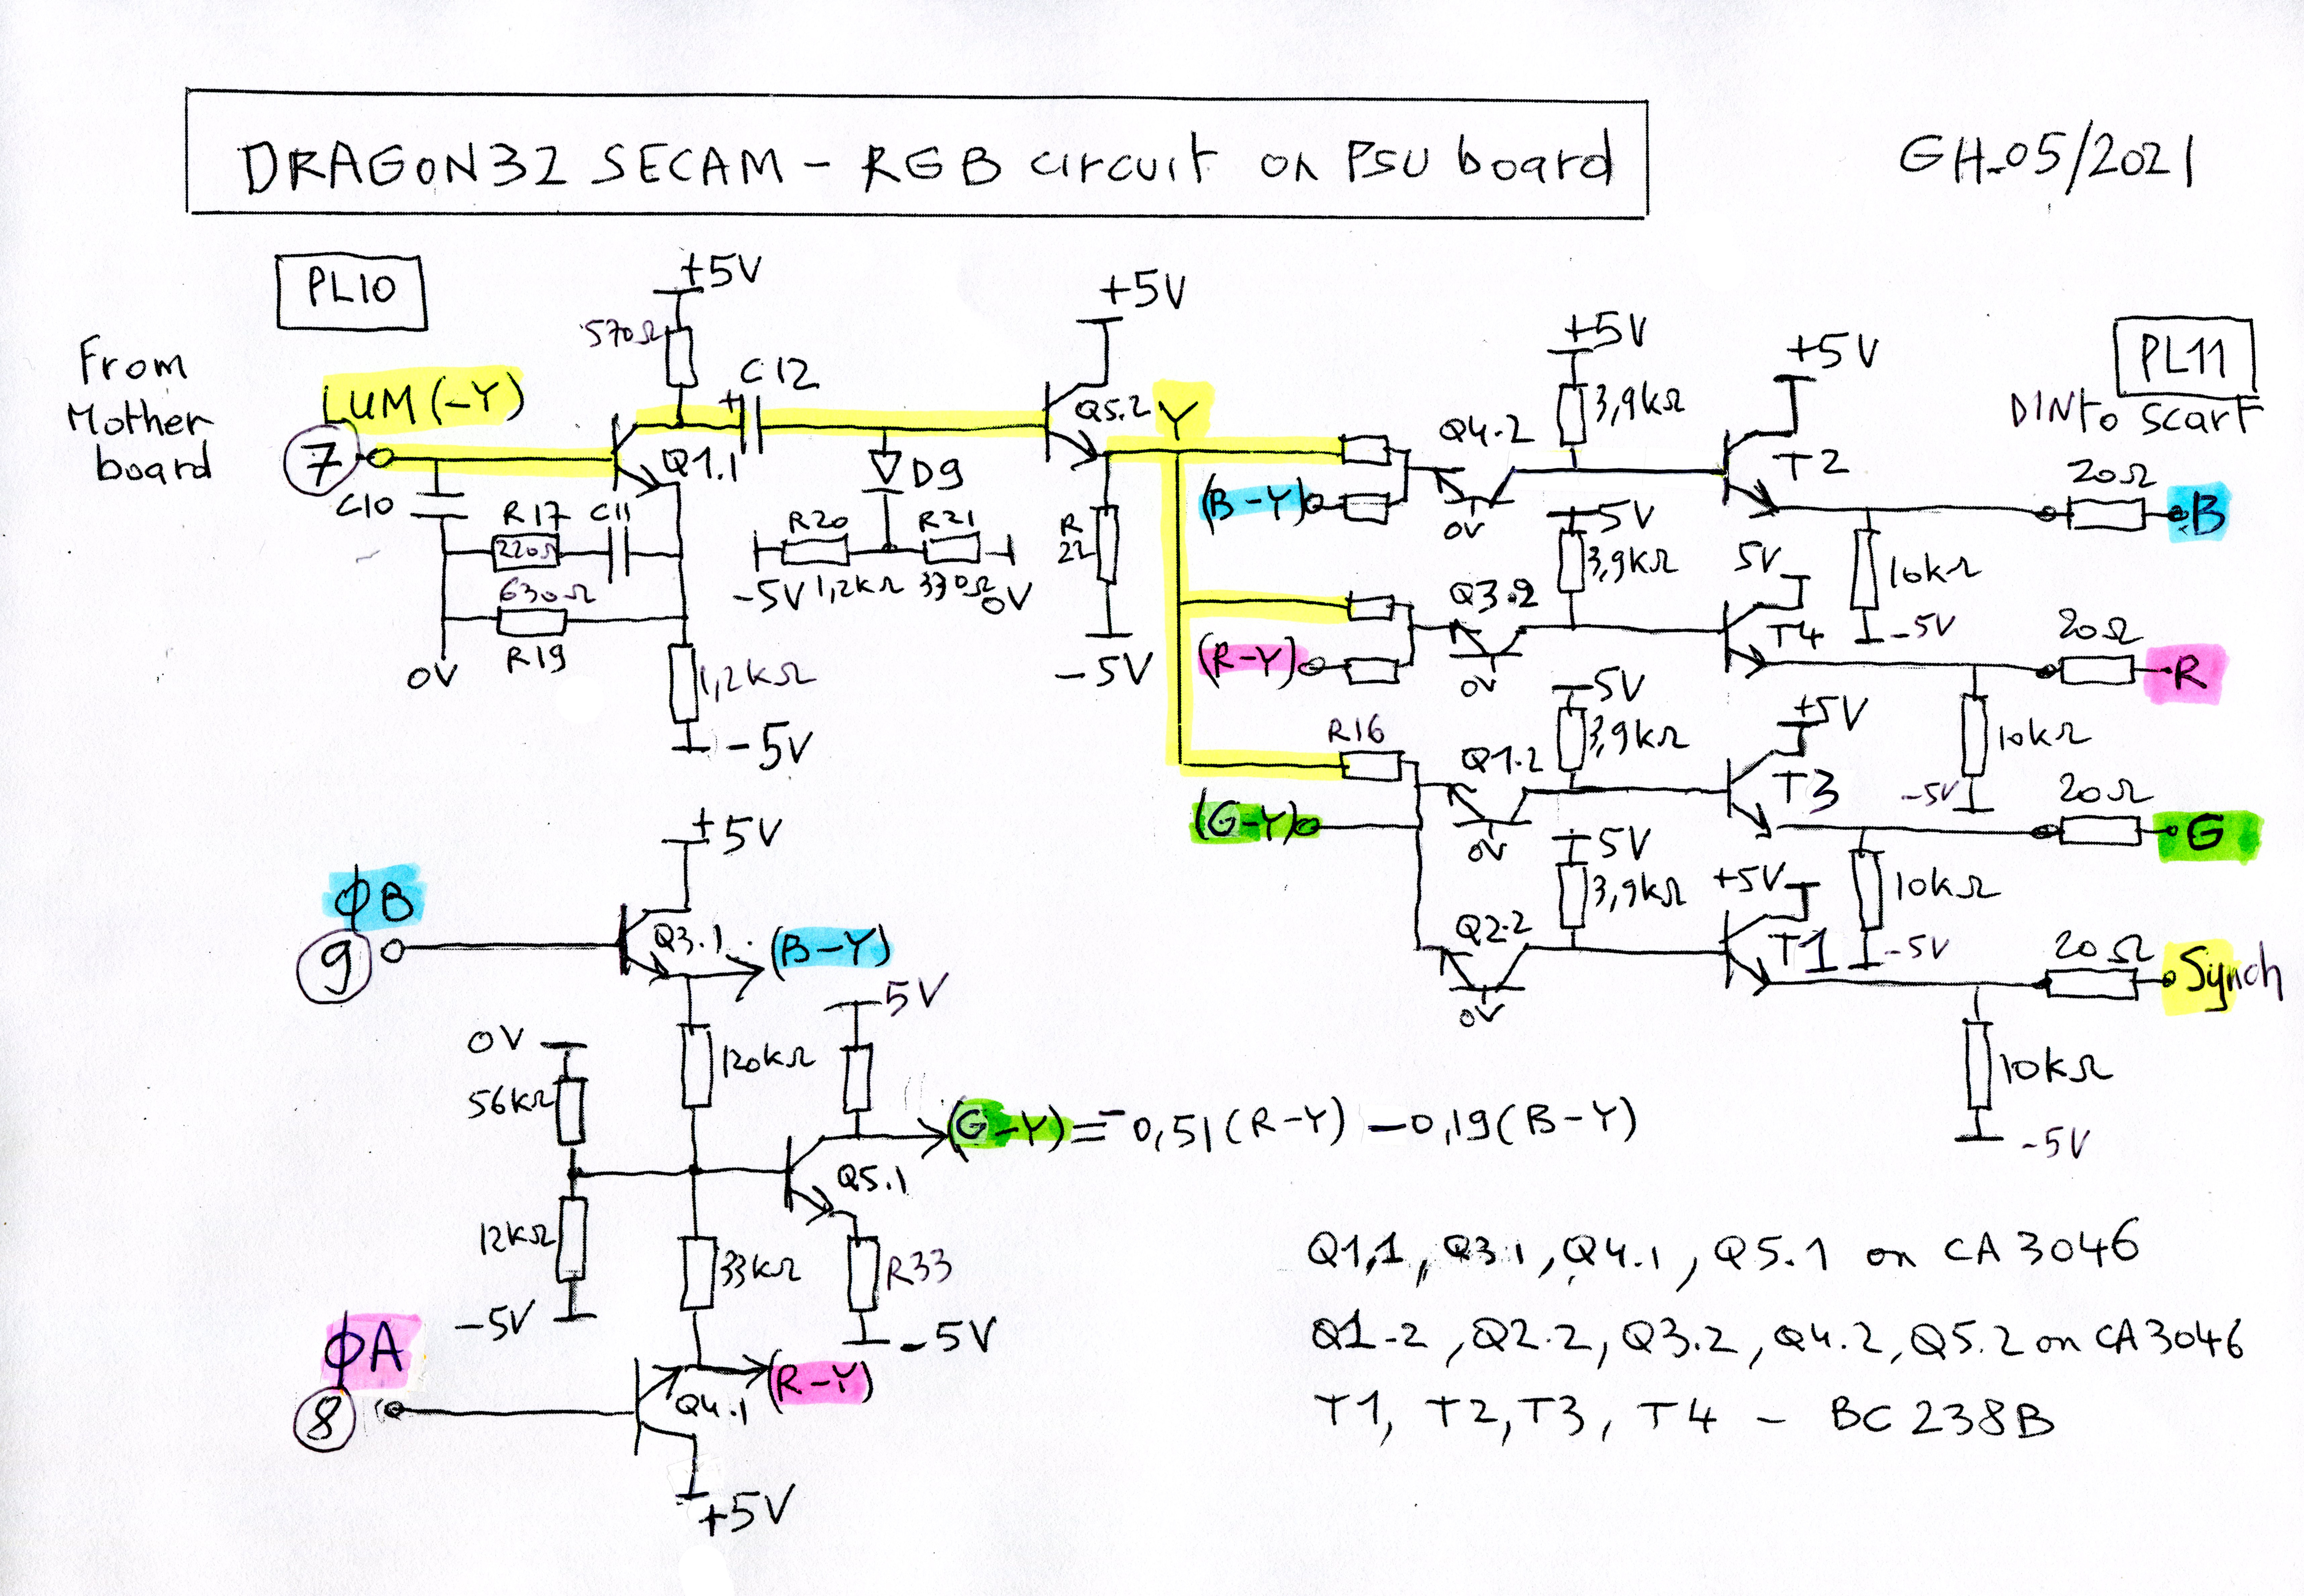 DRAGON32 SECAM - RGB circuit on PSU board
GH-05/2021
PL10
From
Mother
board
LUM (-Y)
7
+5V
570Ω
C12
Q1.1
C10
R17
220Ω
C11
630Ω
R19
0V
1,2kΩ
-5V
D9
R20
R21
-5V 1,2kΩ 330Ω 0V
+5V
Q5.2
Y
R
22
-5V
(B-Y)
Q4.2
0V
+5V
3,9kΩ
+5V
T2
PL11
DIN to Scart
20Ω
B
10kΩ
-5V
(R-Y)
Q3.2
0V
5V
3,9kΩ
5V
T4
20Ω
R
10kΩ
-5V
R16
(G-Y)
Q1.2
0V
5V
3,9kΩ
+5V
T3
20Ω
G
10kΩ
-5V
Q2.2
0V
5V
3,9kΩ
+5V
T1
20Ω
Synch
10kΩ
-5V
ϕB
9
+5V
Q3.1
(B-Y)
120kΩ
0V
56kΩ
12kΩ
-5V
5V
(G-Y) = -0,51(R-Y) -0,19(B-Y)
Q5.1
33kΩ
R33
-5V
ϕA
8
Q4.1
(R-Y)
+5V
Q1,1, Q3.1, Q4.1, Q5.1 on CA3046
Q1-2, Q2.2, Q3.2, Q4.2, Q5.2 on CA3046
T1, T2, T3, T4 - BC238B